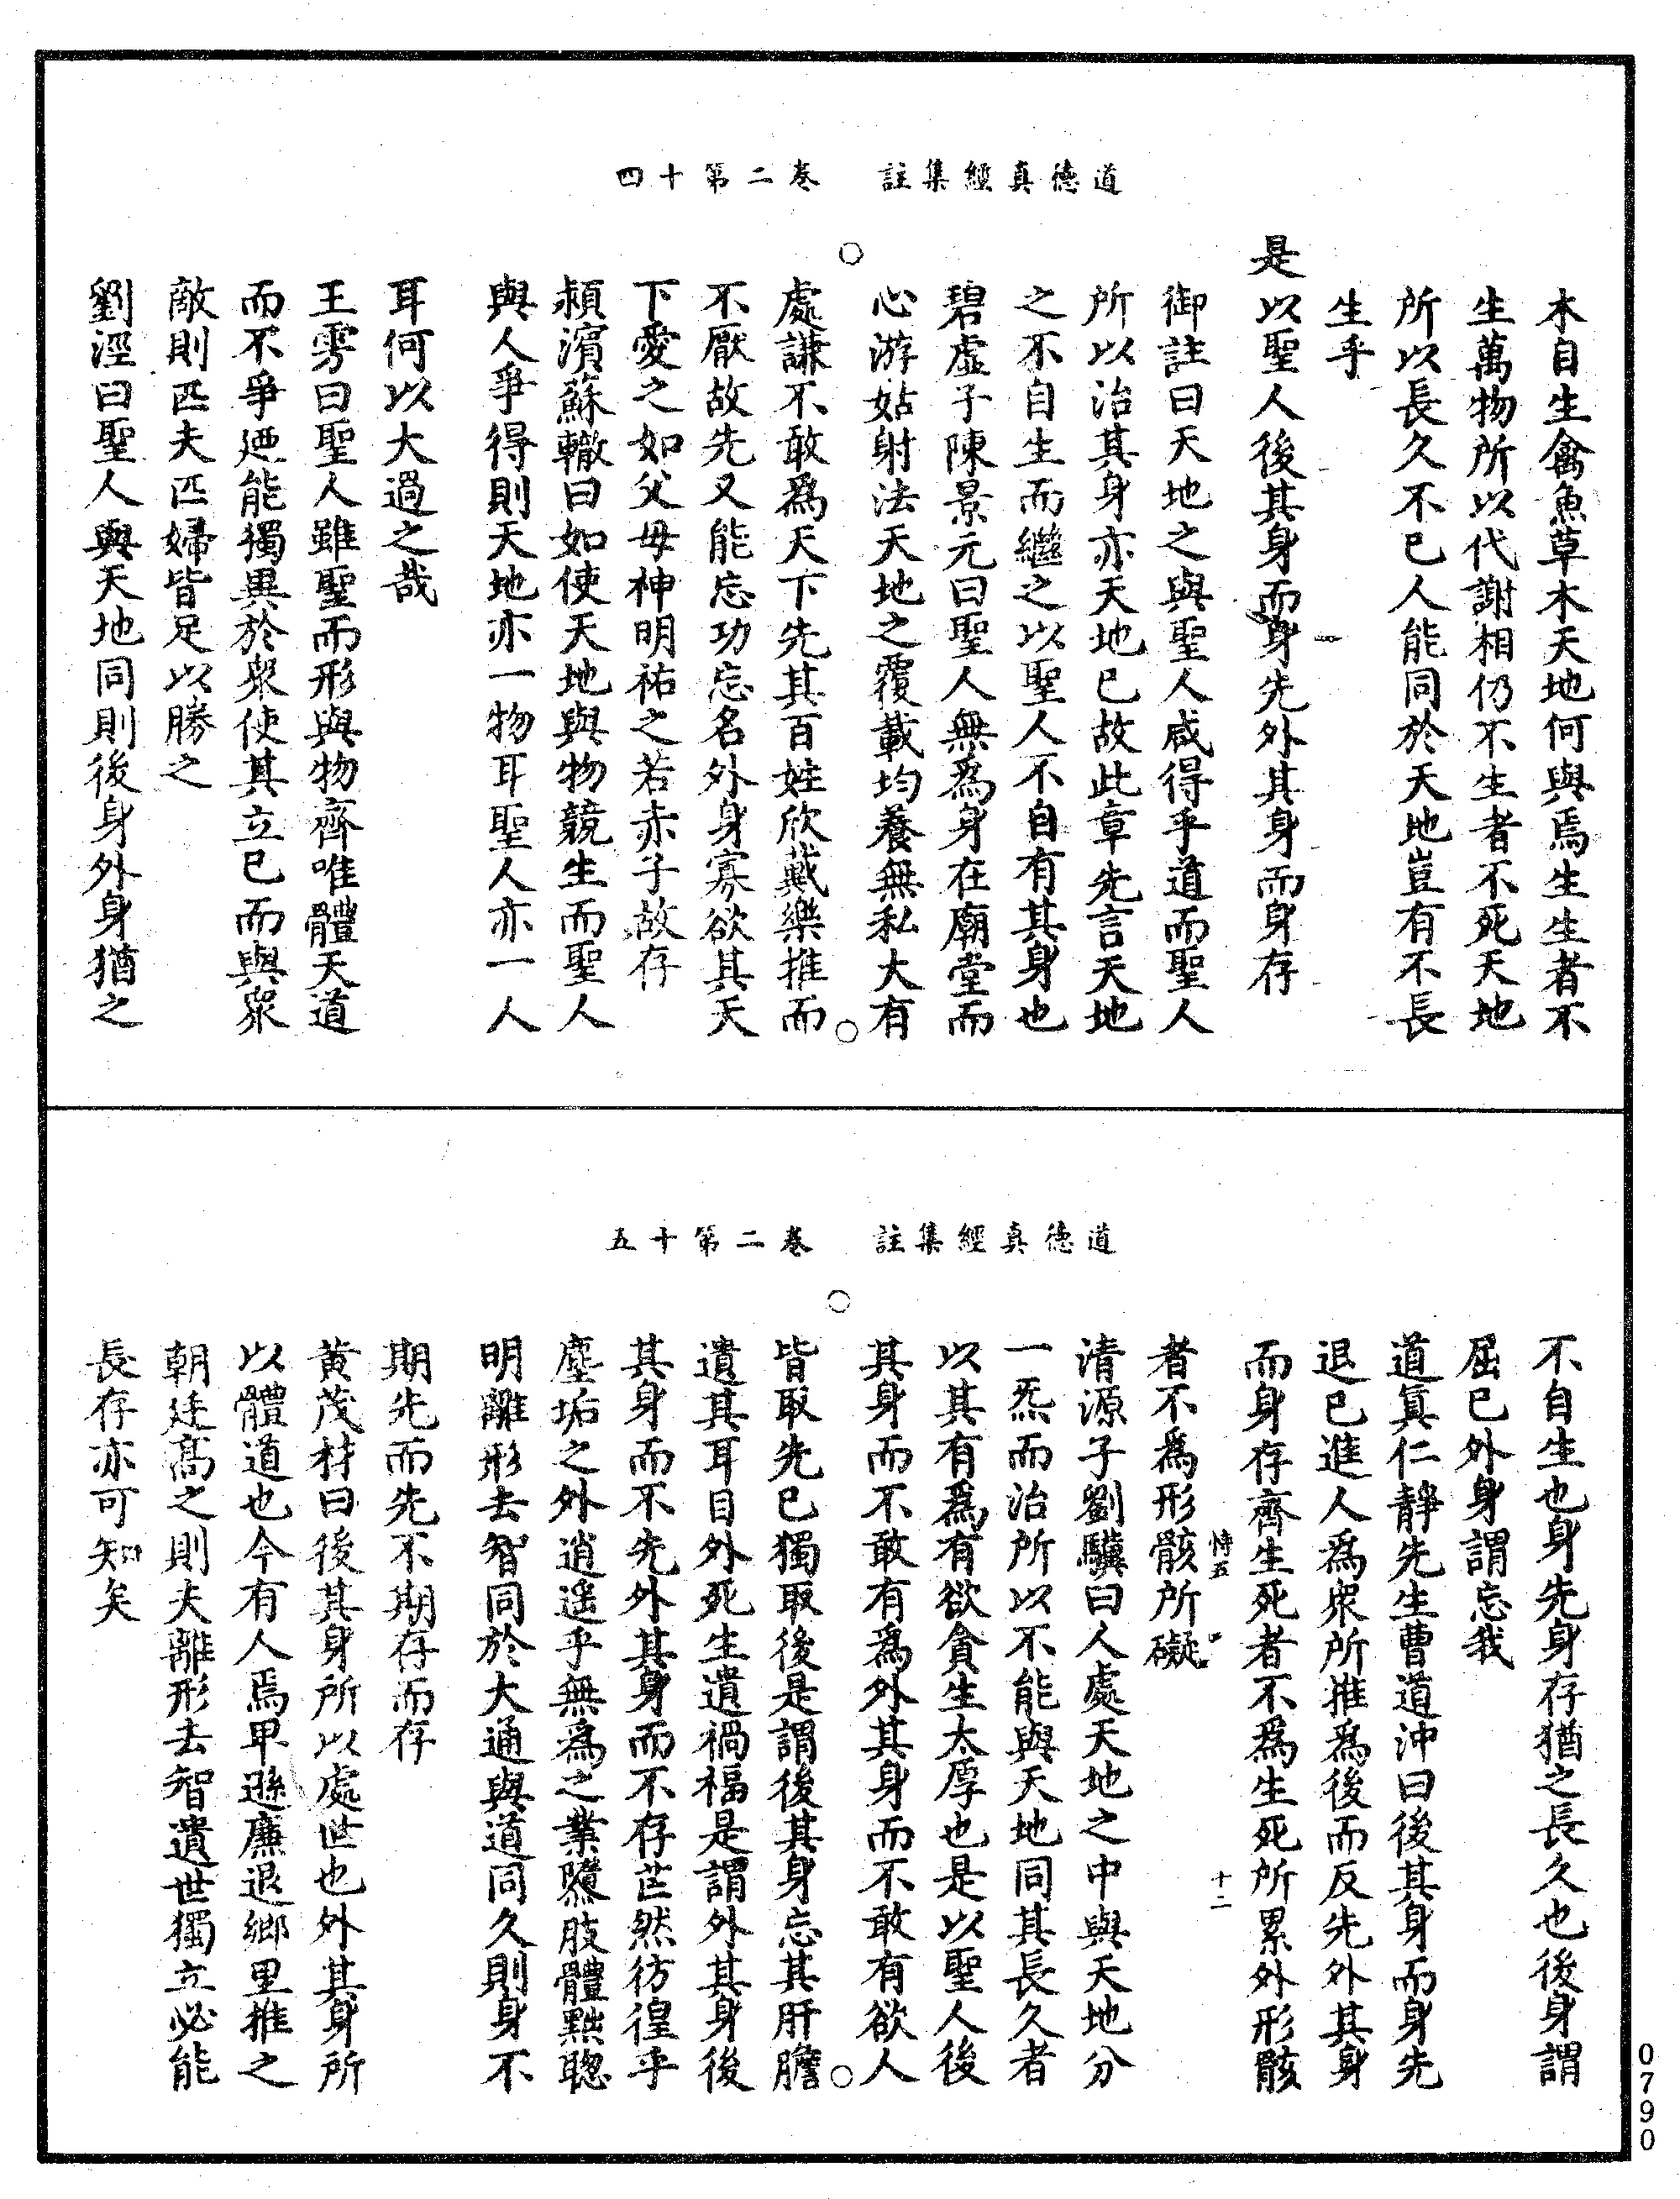 道德真經集註　卷二第十四
木自生禽魚草木天地何與焉生生者不
生萬物所以代謝相仍不生者不死天地
所以長久不已人能同於天地豈有不長
生乎
是以聖人後其身而身先外其身而身存
御註曰天地之與聖人咸得乎道而聖人
所以治其身亦天地已故此章先言天地
之不自生而繼之以聖人不自有其身也
碧虛子陳景元曰聖人無為身在廟堂而
心游姑射法天地之覆載均養無私大有
處謙不敢為天下先其百姓欣戴樂推而
不厭故先又能忘功忘名外身寡欲其天
下愛之如父母神明祐之若赤子故存
潁濱蘇轍曰如使天地與物競生而聖人
與人爭得則天地亦一物耳聖人亦一人
耳何以大過之哉
王雱曰聖人雖聖而形與物齊唯體天道
而不爭廼能獨異於衆使其立已而與衆
敵則匹夫匹婦皆足以勝之
劉涇曰聖人與天地同則後身外身猶之
道德真經集註　卷二第十五
不自生也身先身存猶之長久也後身謂
屈已外身謂忘我
道真仁靜先生曹道沖曰後其身而身先
退已進人為衆所推為後而反先外其身
而身存齊生死者不為生死所累外形骸
者不為形骸所礙
恃五　十二
清源子劉驥曰人處天地之中與天地分
一炁而治所以不能與天地同其長久者
以其有為有欲貪生太厚也是以聖人後
其身而不敢有為外其身而不敢有欲人
皆取先已獨取後是謂後其身忘其肝膽
遺其耳目外死生遺禍福是謂外其身後
其身而不先外其身而不存芒然彷徨乎
塵垢之外逍遥乎無為之業隳肢體黜聰
明離形去智同於大通與道同久則身不
期先而先不期存而存
黄茂材曰後其身所以處世也外其身所
以體道也今有人焉早遜廉退鄉里推之
朝廷高之則夫離形去智遺世獨立必能
長存亦可知矣
0790